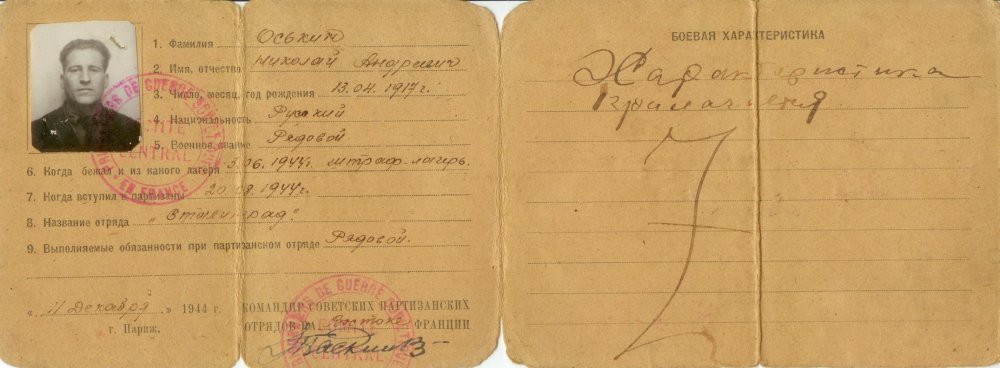 1. Фамилия Оськин
2. Имя, отчество Николай Андреевич
3. Число, месяц, год рождения 13.04.1917г.
4. Национальность Русский
5. Военное звание Рядовой
6. Когда бежал и из какого лагеря 3.06.1944г. штраф-лагерь.
7. Когда вступил в партизаны 20.08.1944г.
8. Название отряда „Сталинград"
9. Выполняемые обязанности при партизанском отряде Рядовой.
„ 11 Декабря " 1944 г.
г. Париж.
КОМАНДИР СОВЕТСКИХ ПАРТИЗАНСКИХ
ОТРЯДОВ НА Востоке ФРАНЦИИ
DE GUERRE
CENTRAL
EN FRANCE
DE GUERRE
CENTRAL
БОЕВАЯ ХАРАКТЕРИСТИКА
Характеристика